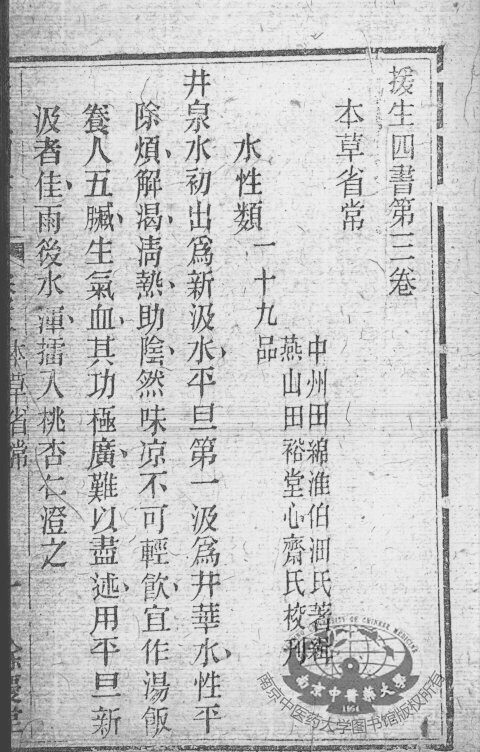 援生四書第三卷
本草省常
中州田綿淮伯沺氏著輯
燕山田裕堂心齋氏校刊
水性類一十九品
井泉水初出爲新汲水平旦第一汲爲井華水性平
除煩解渴淸熱助陰然味涼不可輕飲宜作湯飯
養人五臟生氣血其功極廣難以盡述用平旦新
汲者佳雨後水渾擂入桃杏仁澄之
本草省常
南京中醫藥大學
1954
南京中医药大学图书馆版权所有